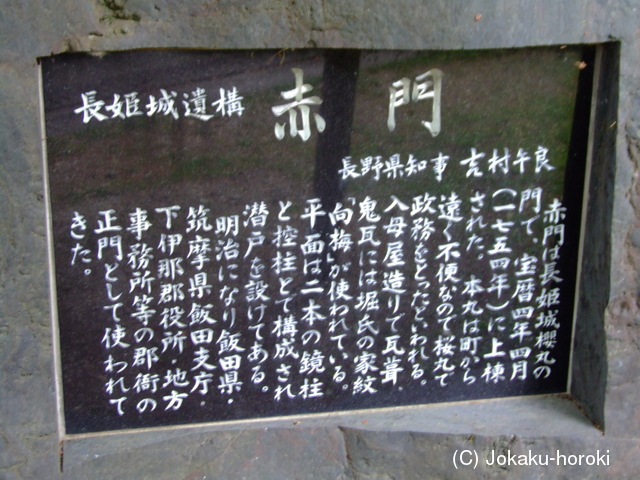 長姫城遺構 赤門
長野県知事 吉村午良
赤門は長姫城櫻丸の
門で、宝暦四年四月
(一七五四年)に上棟
された。本丸は町から
遠く不便なので桜丸で
政務をとったといわれる。
入母屋造りで瓦葺、
鬼瓦には堀氏の家紋
「向梅」が使われている。
平面は二本の鏡柱
と控柱とで構成され
潜戸を設けてある。
明治になり飯田県・
筑摩県飯田支庁・
下伊那郡役所・地方
事務所等の郡衙の
正門として使われて
きた。
(C) Jokaku-horoki